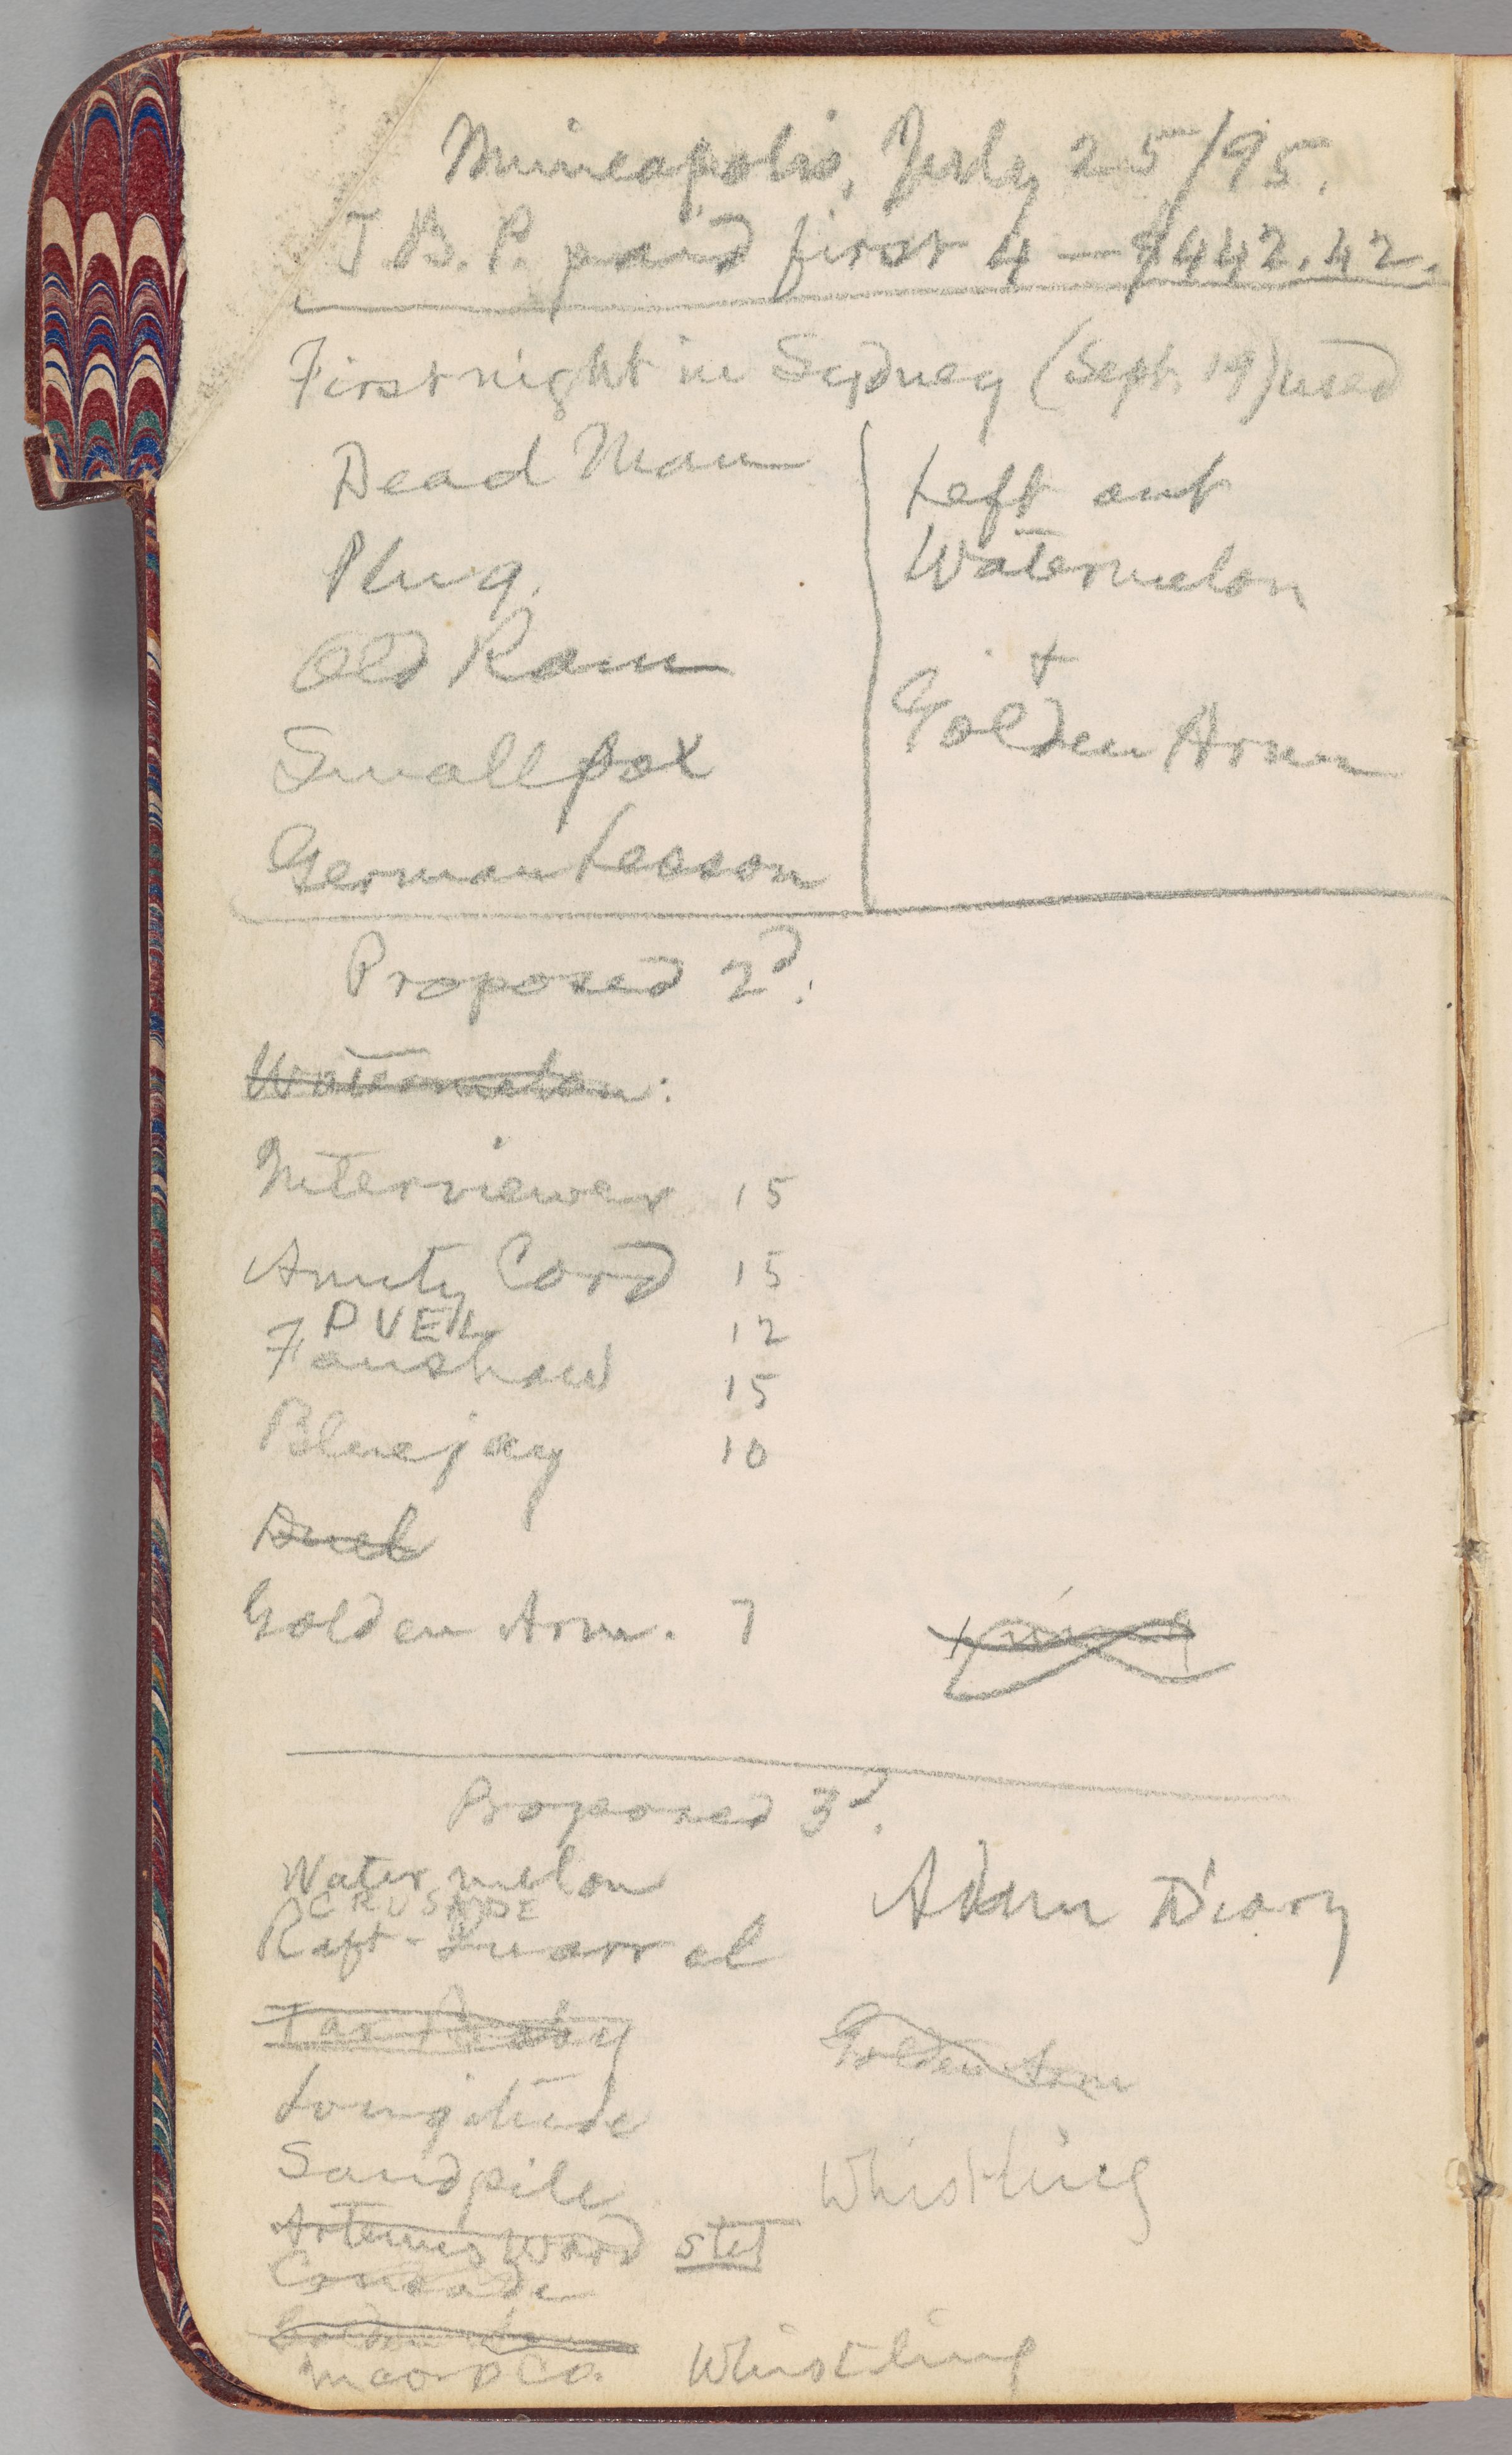 Minneapolis, July 25/95.
J.B.P. paid first 4 — $442.42.
First night in Sydney (Sept. 19) used
Dead Man
Plug.
Old Ram
Smallpox
German Lesson
Left out
Watermelon
+
Golden Arm
Proposed 2d.
Watermelon:
Interviewer 15
Amity Cord 15
DUEL 12
Fanshaw 15
Bluejay 10
Duel
Golden Arm. 7
Proposed 3d.
Water melon
CRUSADE
Raft-Quarrel
Tar Baby
Longitude
Sandpile
Artemus Ward stet
Crusade
Golden Arm
Adam Diary
Golden Arm
Whistling
Whistling